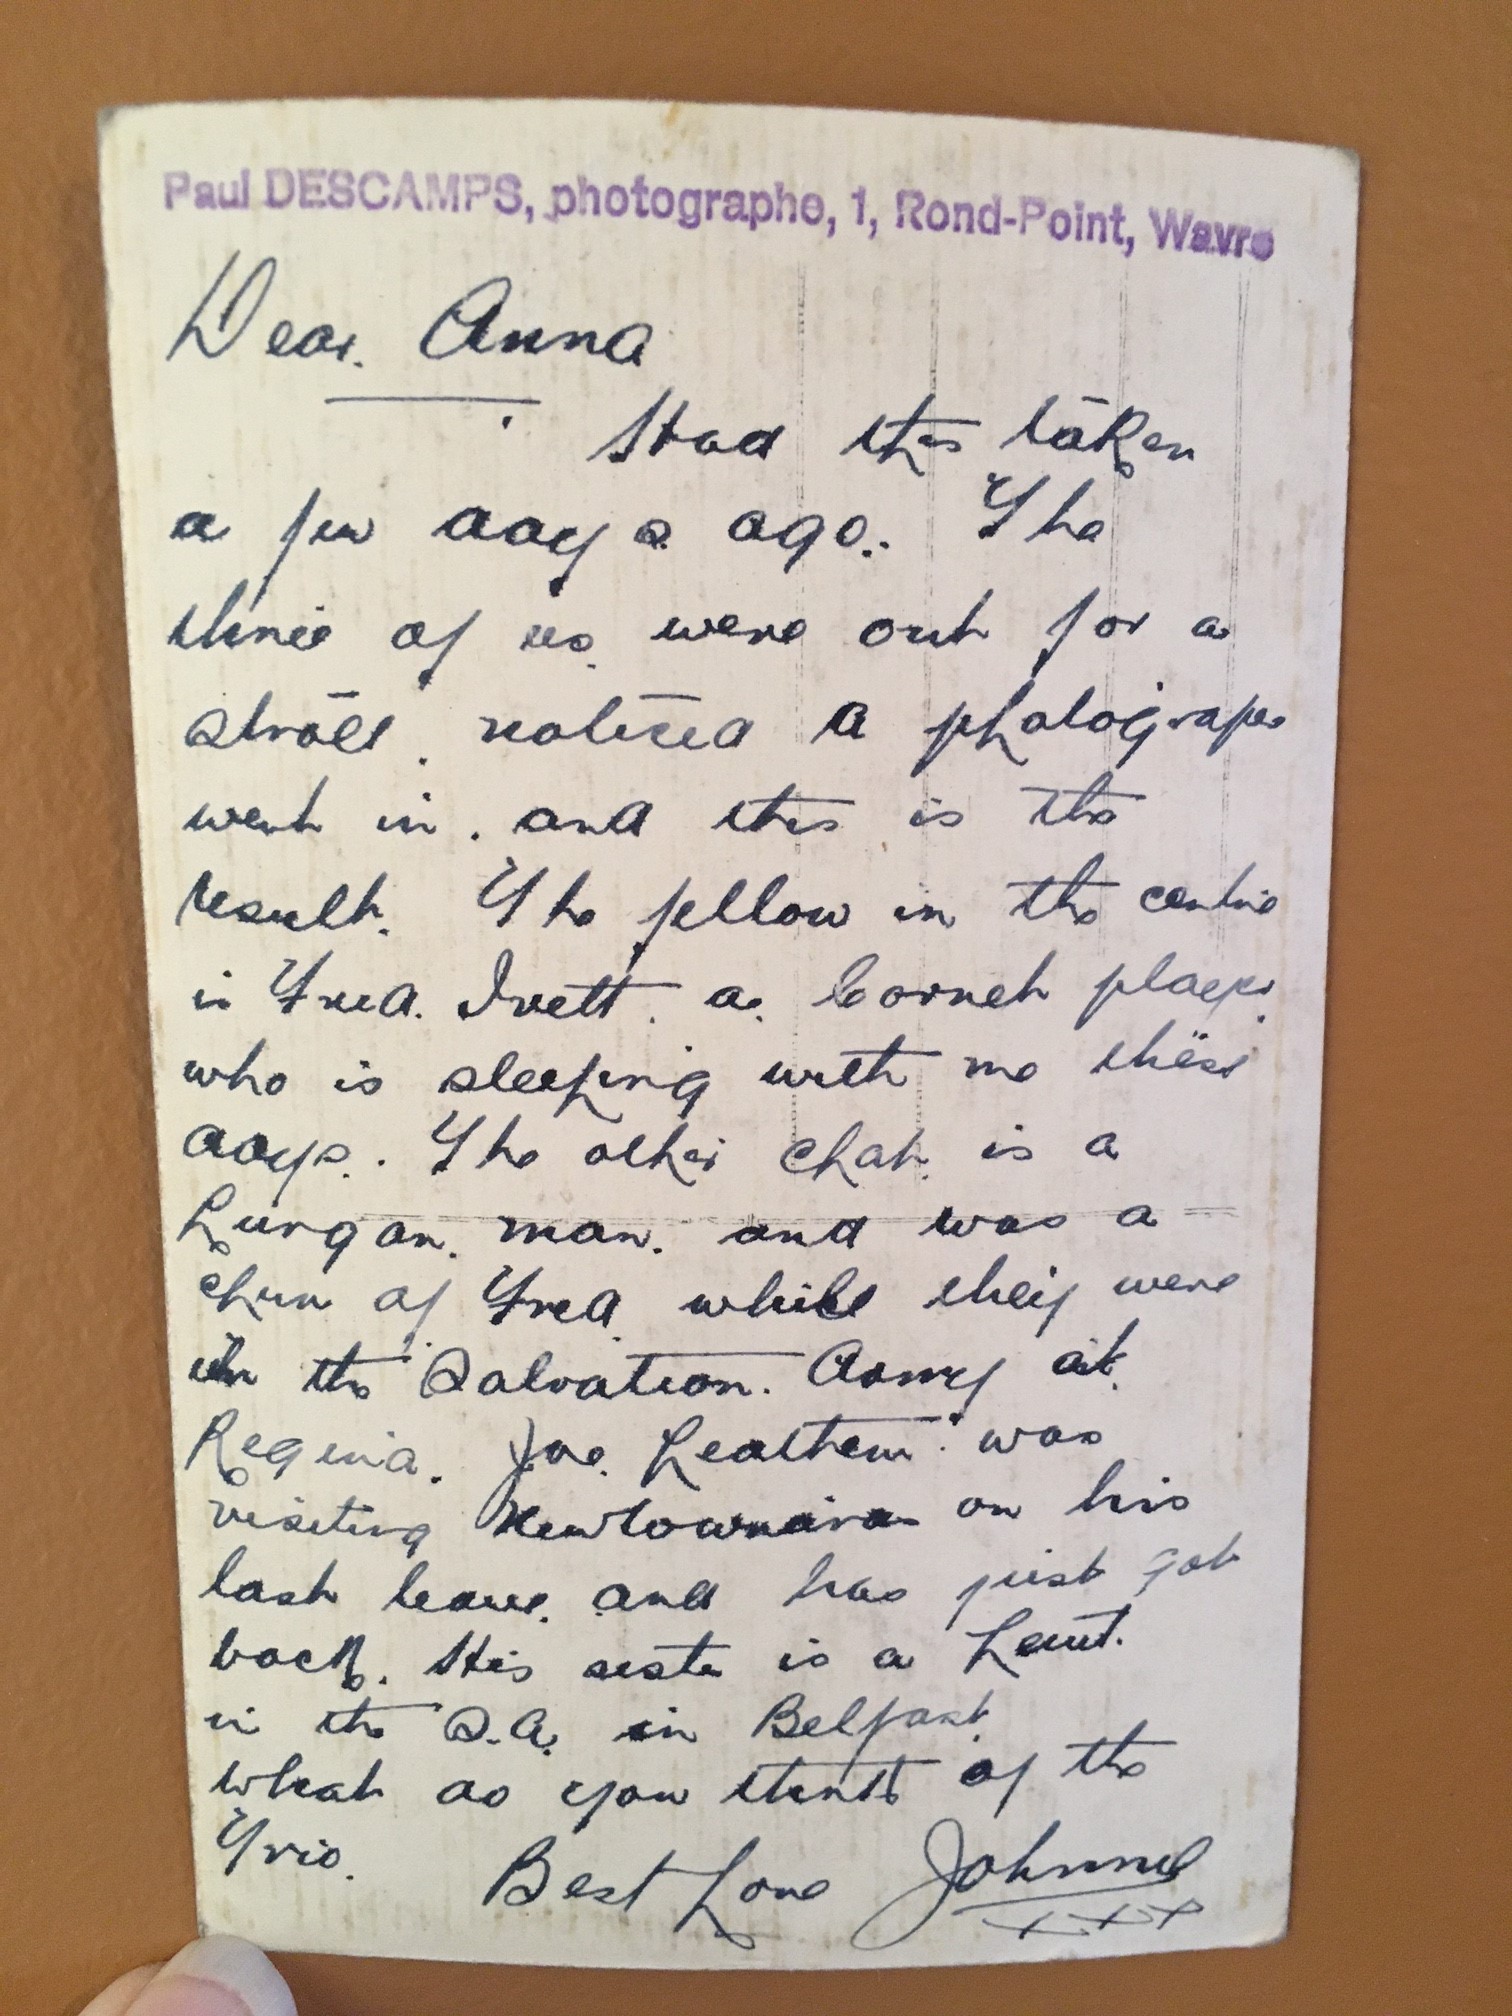 Paul DESCAMPS, photographe, 1, Rond-Point, Wavre
Dear Anna
Had this taken
a few days ago. The
three of us were out for a
stroll. noticed a photographer
went in. and this is the
result. The fellow in the centre
is Fred. Ivett. a. Cornet player.
who is sleeping with me these
days. The other chap is a
Lurgan. man. and was a
chum of Fred while they were
in the Salvation. Army at
Regina. Joe. Leathem was
visiting Newtownards on his
last leave. and has just got
back. His sister is a Leiut.
in the S.A. in Belfast.
What do you think of the
Trio.
Best Love Johnnie
xxx